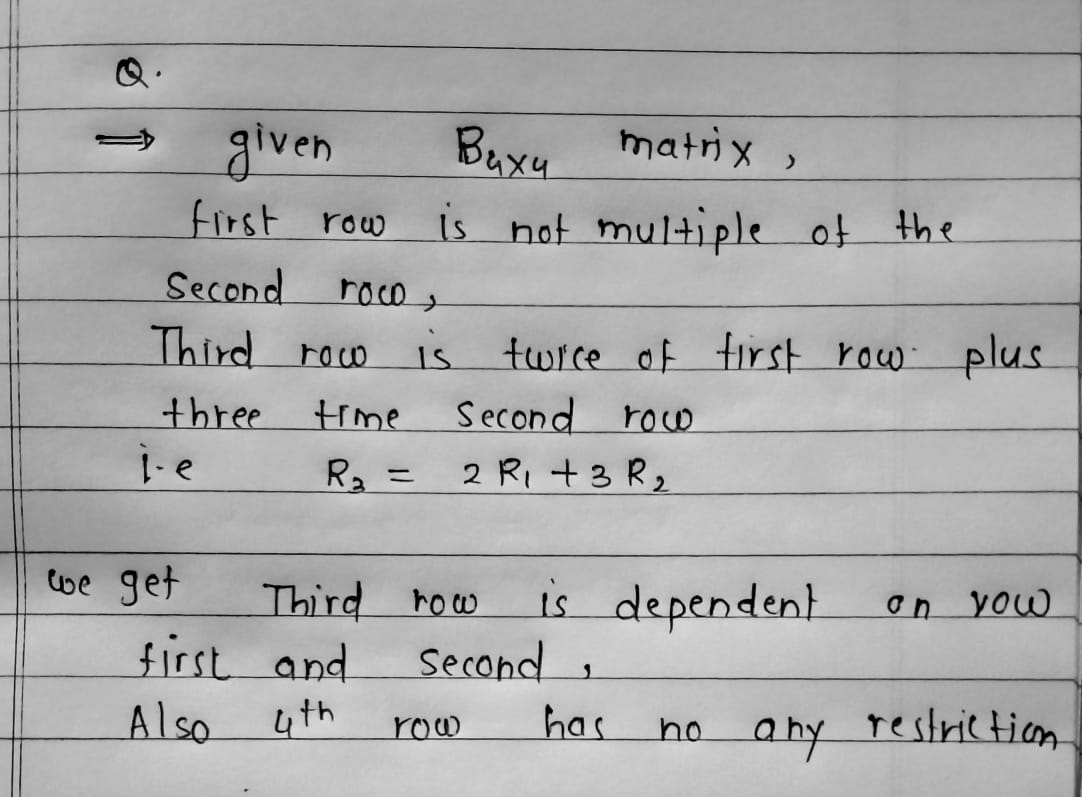 Q.
⇒ given B4x4 matrix,
first row is not multiple of the
Second row,
Third row is twice of first row plus
three time Second row
i.e R3 = 2 R1 + 3 R2
we get Third row is dependent on row
first and second,
Also 4th row has no any restriction